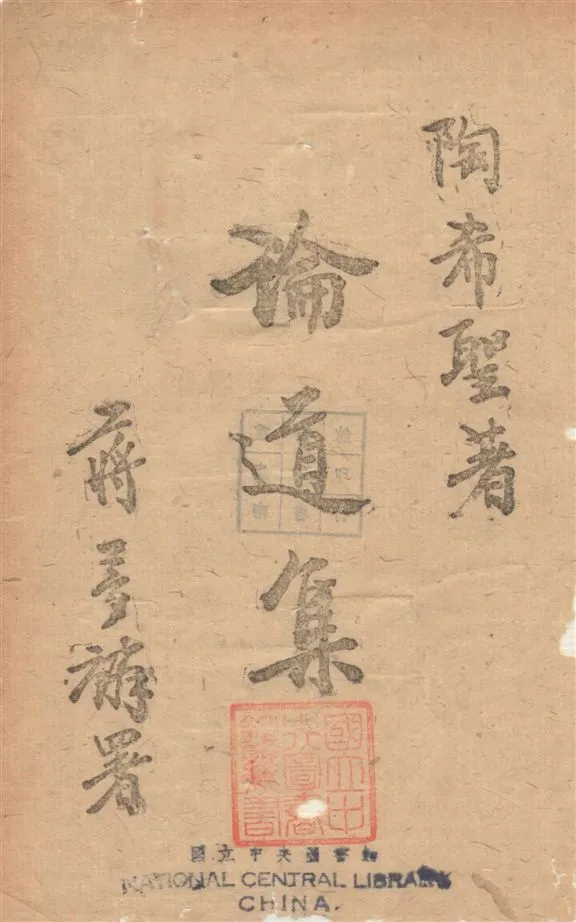 陶希聖著
論道集
蔣夢麟署
國立中
央圖書
館藏書
國立中央圖書館
NATIONAL CENTRAL LIBRARY
CHINA.